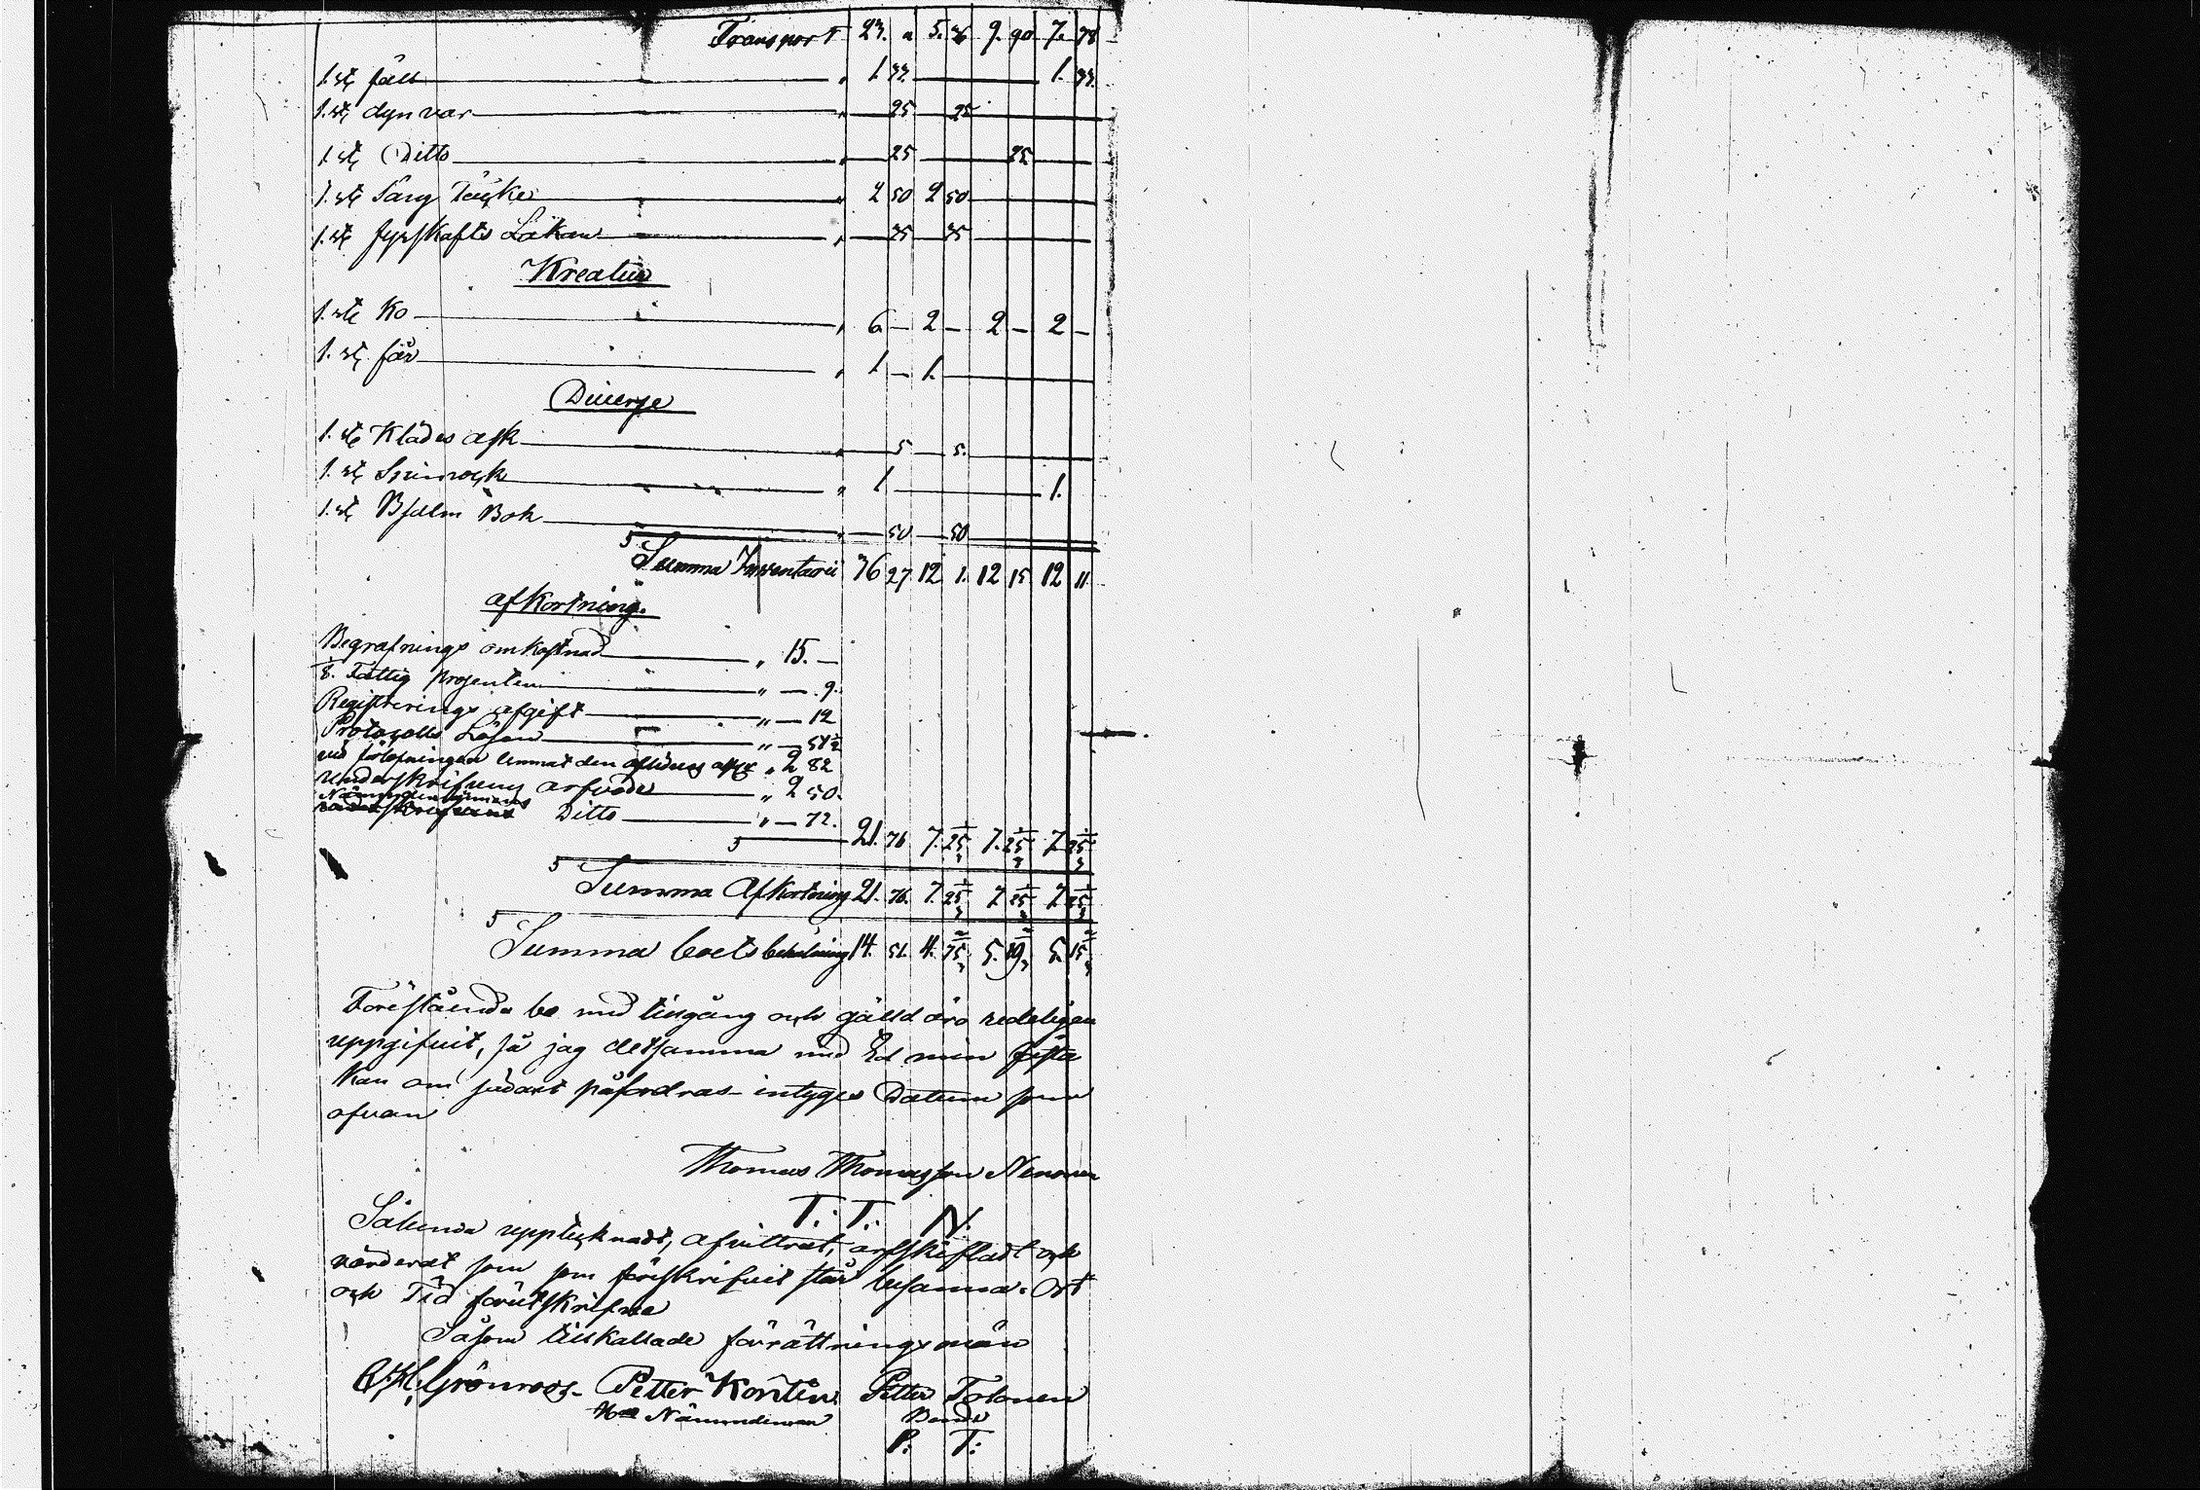 Transport 23. " 5. 36 9. 90 7. 78
1. st fäll " 1 33. 1. 33.
1. st dyn var " 25 25
1 st Ditto " 25 25
1. st Säng Täcke " 2 50 2 50
1. st fyrskafts Lakan " 75 75
Kreatur
1. st Ko " 6 — 2 — 2 — 2 —
1. st får " 1 — 1.
Diverse
1. st Klädes ask " 5 5.
1. st Spinrock " 1 1.
1. st Psalm Bok " 50 50
Summa Inventarii 36 27 12 1. 12 15 12 11
afkortning.
Begrafnings omkostnad " 15. —
1/8. Fattig prosenten " — 9.
Registrerings afgift " — 12
Protocolls Lösen " — 51 1/2
ved förlofningen lemnat den aflidnes " 2 82
underskrifvens arfvode " 2 50.
Nämndemannens
Ditto " — 72.
21. 76 7. 25 1/3 7. 25 1/3 7. 25 1/3
Summa Afkortning 21. 76. 7. 25 1/3 7 25 1/3 7. 25 1/3
Summa boets behållning 14. 51. 4. 75 2/3 5. 19 5. 15 2/3
Förestående bo med tillgång och gälld äro redeligen
uppgifvit, så jag detsamma med Ed min fästa
kan om sådant påfordras — intyges Datum som
ofvan
Thomas Thomasson Nenonen
T. T. N.
Sålunda upptecknadt, afvittrat, arfskiftadt och
värderat som som föreskrifvit står besanna. Ort
och Tid förutskrifne
Såsom tillkallade förrättningsmän
Grönroos. Petter Kontin Petter Tolonen
Nämndeman Bonde
P. T.